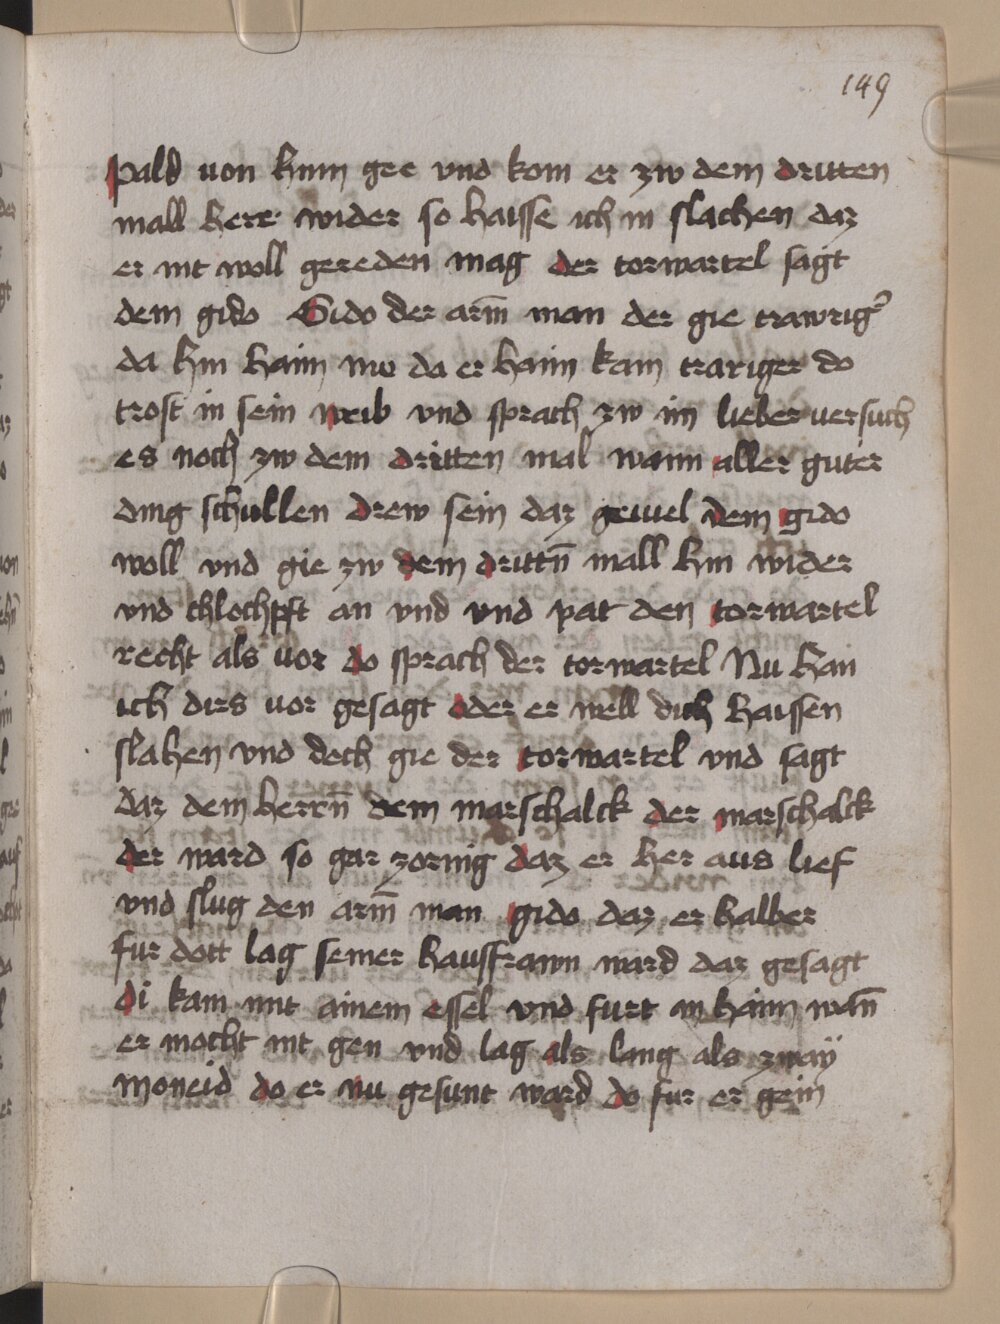 149
pald von hinn gee vnd kom er zw dem dritten
mall here wider so haisse ich in slachen daz
er nit woll gereden mag der torwartel sagt
dem gido Gido der arm̄ man der gie trawrigꝰ
da hin haim vnd da er haim kam trariger do
trost in sein weib vnd sprach zw im lieber versuch
es noch zw dem dritten mal wann aller guter
ding schullen drew sein daz geuel dem gido
woll vnd gie zw dem drittn̄ mall hin wider
vnd chlochpft an vnd vnd pat den torwartel
recht als vor do sprach der torwartel Nu han
ich dirs vor gesagt oder er well dich haissen
slahen vnd doch gie der torwartel vnd sagt
daz dem herrn̄ dem marschalck der marschalck
der ward so gar zornig daz er her aus lief
vnd slug den arm̄ man gido daz er halber
fur dott lag seiner hausfrawn ward daz gesagt
di kam mit ainem essel vnd furt in haim wan̄
er mocht nit gen vnd lag als lang als zwaÿ
moneid do er nu gesunt ward do fur er gein